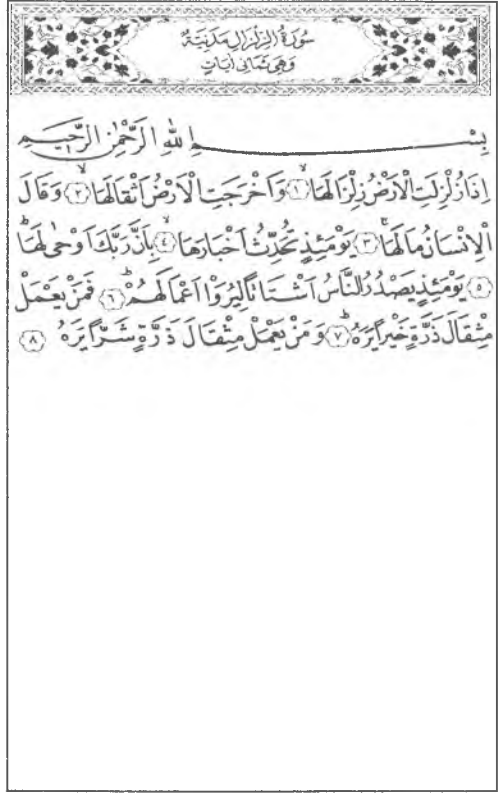 سُورَةُ الزِّلْزَالِ مَدَنِيَّةٌ
وَهِيَ ثَمَانِي اٰيَاتٍ
بِسْمِ اللّٰهِ الرَّحْمٰنِ الرَّحِيمِ
اِذَا زُلْزِلَتِ الْاَرْضُ زِلْزَالَهَاۙ ﴿١﴾ وَاَخْرَجَتِ الْاَرْضُ اَثْقَالَهَاۙ ﴿٢﴾ وَقَالَ
الْاِنْسَانُ مَا لَهَاۚ ﴿٣﴾ يَوْمَئِذٍ تُحَدِّثُ اَخْبَارَهَاۙ ﴿٤﴾ بِاَنَّ رَبَّكَ اَوْحٰى لَهَاۜ
﴿٥﴾ يَوْمَئِذٍ يَصْدُرُ النَّاسُ اَشْتَاتًا لِيُرَوْا اَعْمَالَهُمْۜ ﴿٦﴾ فَمَنْ يَعْمَلْ
مِثْقَالَ ذَرَّةٍ خَيْرًا يَرَهُۜ ﴿٧﴾ وَمَنْ يَعْمَلْ مِثْقَالَ ذَرَّةٍ شَرًّا يَرَهُ ﴿٨﴾